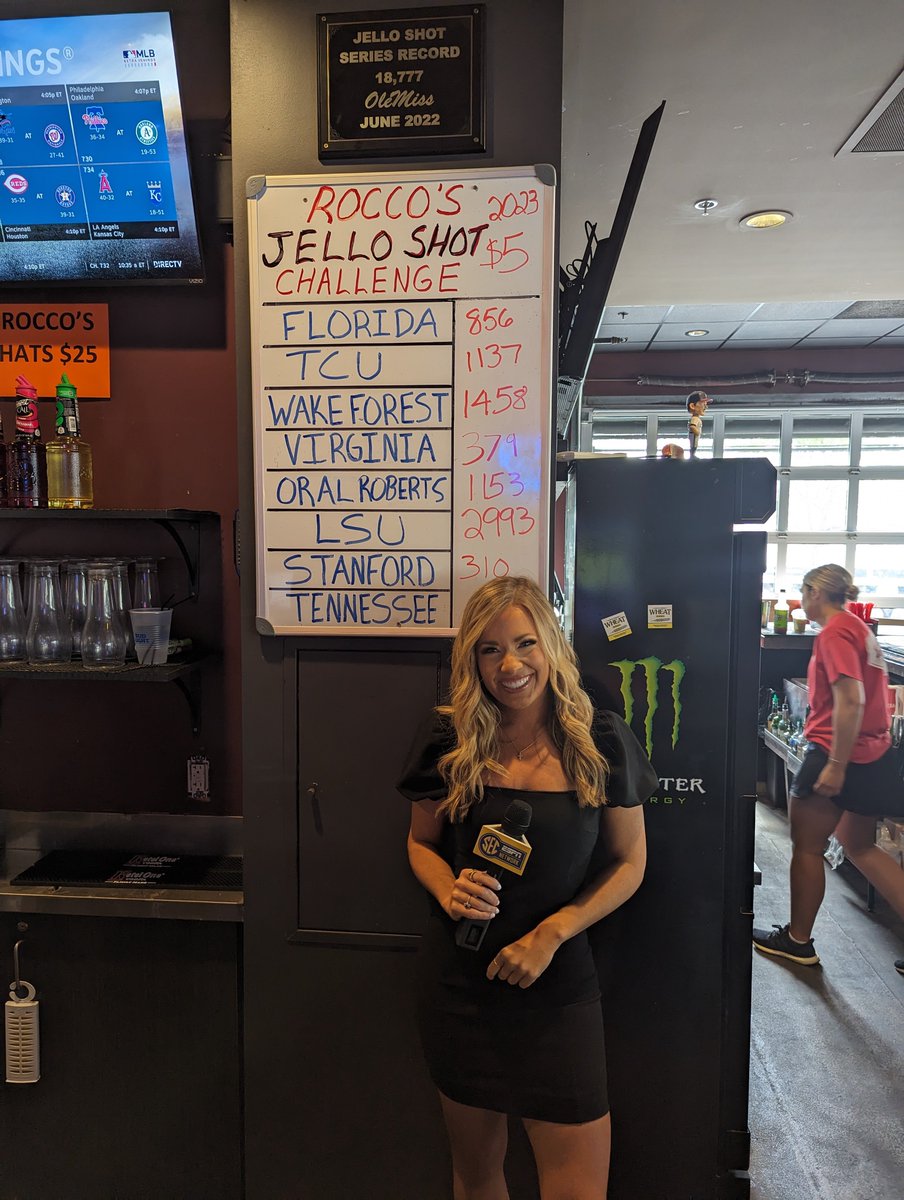 JELLO SHOT
SERIES RECORD
18,777
Ole Miss
JUNE 2022
INGS®
MLB
EXTRA INNINGS
4:05p ET
Philadelphia
Oakland
4:07p ET
39-31
AT
27-41
36-34
AT
19-53
730
734
REDS
35-35
AT
39-31
40-32
AT
KC
18-51
Cincinnati
Houston
4:10p ET
LA Angels
Kansas City
4:10p ET
4:10p ET
CH. 732
10:35a ET
DIRECTV
VIZIO
ROCCO'S
HATS $25
ROCCO'S 2023
JELLO SHOT $5
CHALLENGE
FLORIDA 856
TCU 1137
WAKE FOREST 1458
VIRGINIA 379
ORAL ROBERTS 1153
LSU 2993
STANFORD 310
TENNESSEE
WHEAT
WHEAT
ENERGY
SEC ESPN
NETWORK
BUD LIGHT
Ketel One